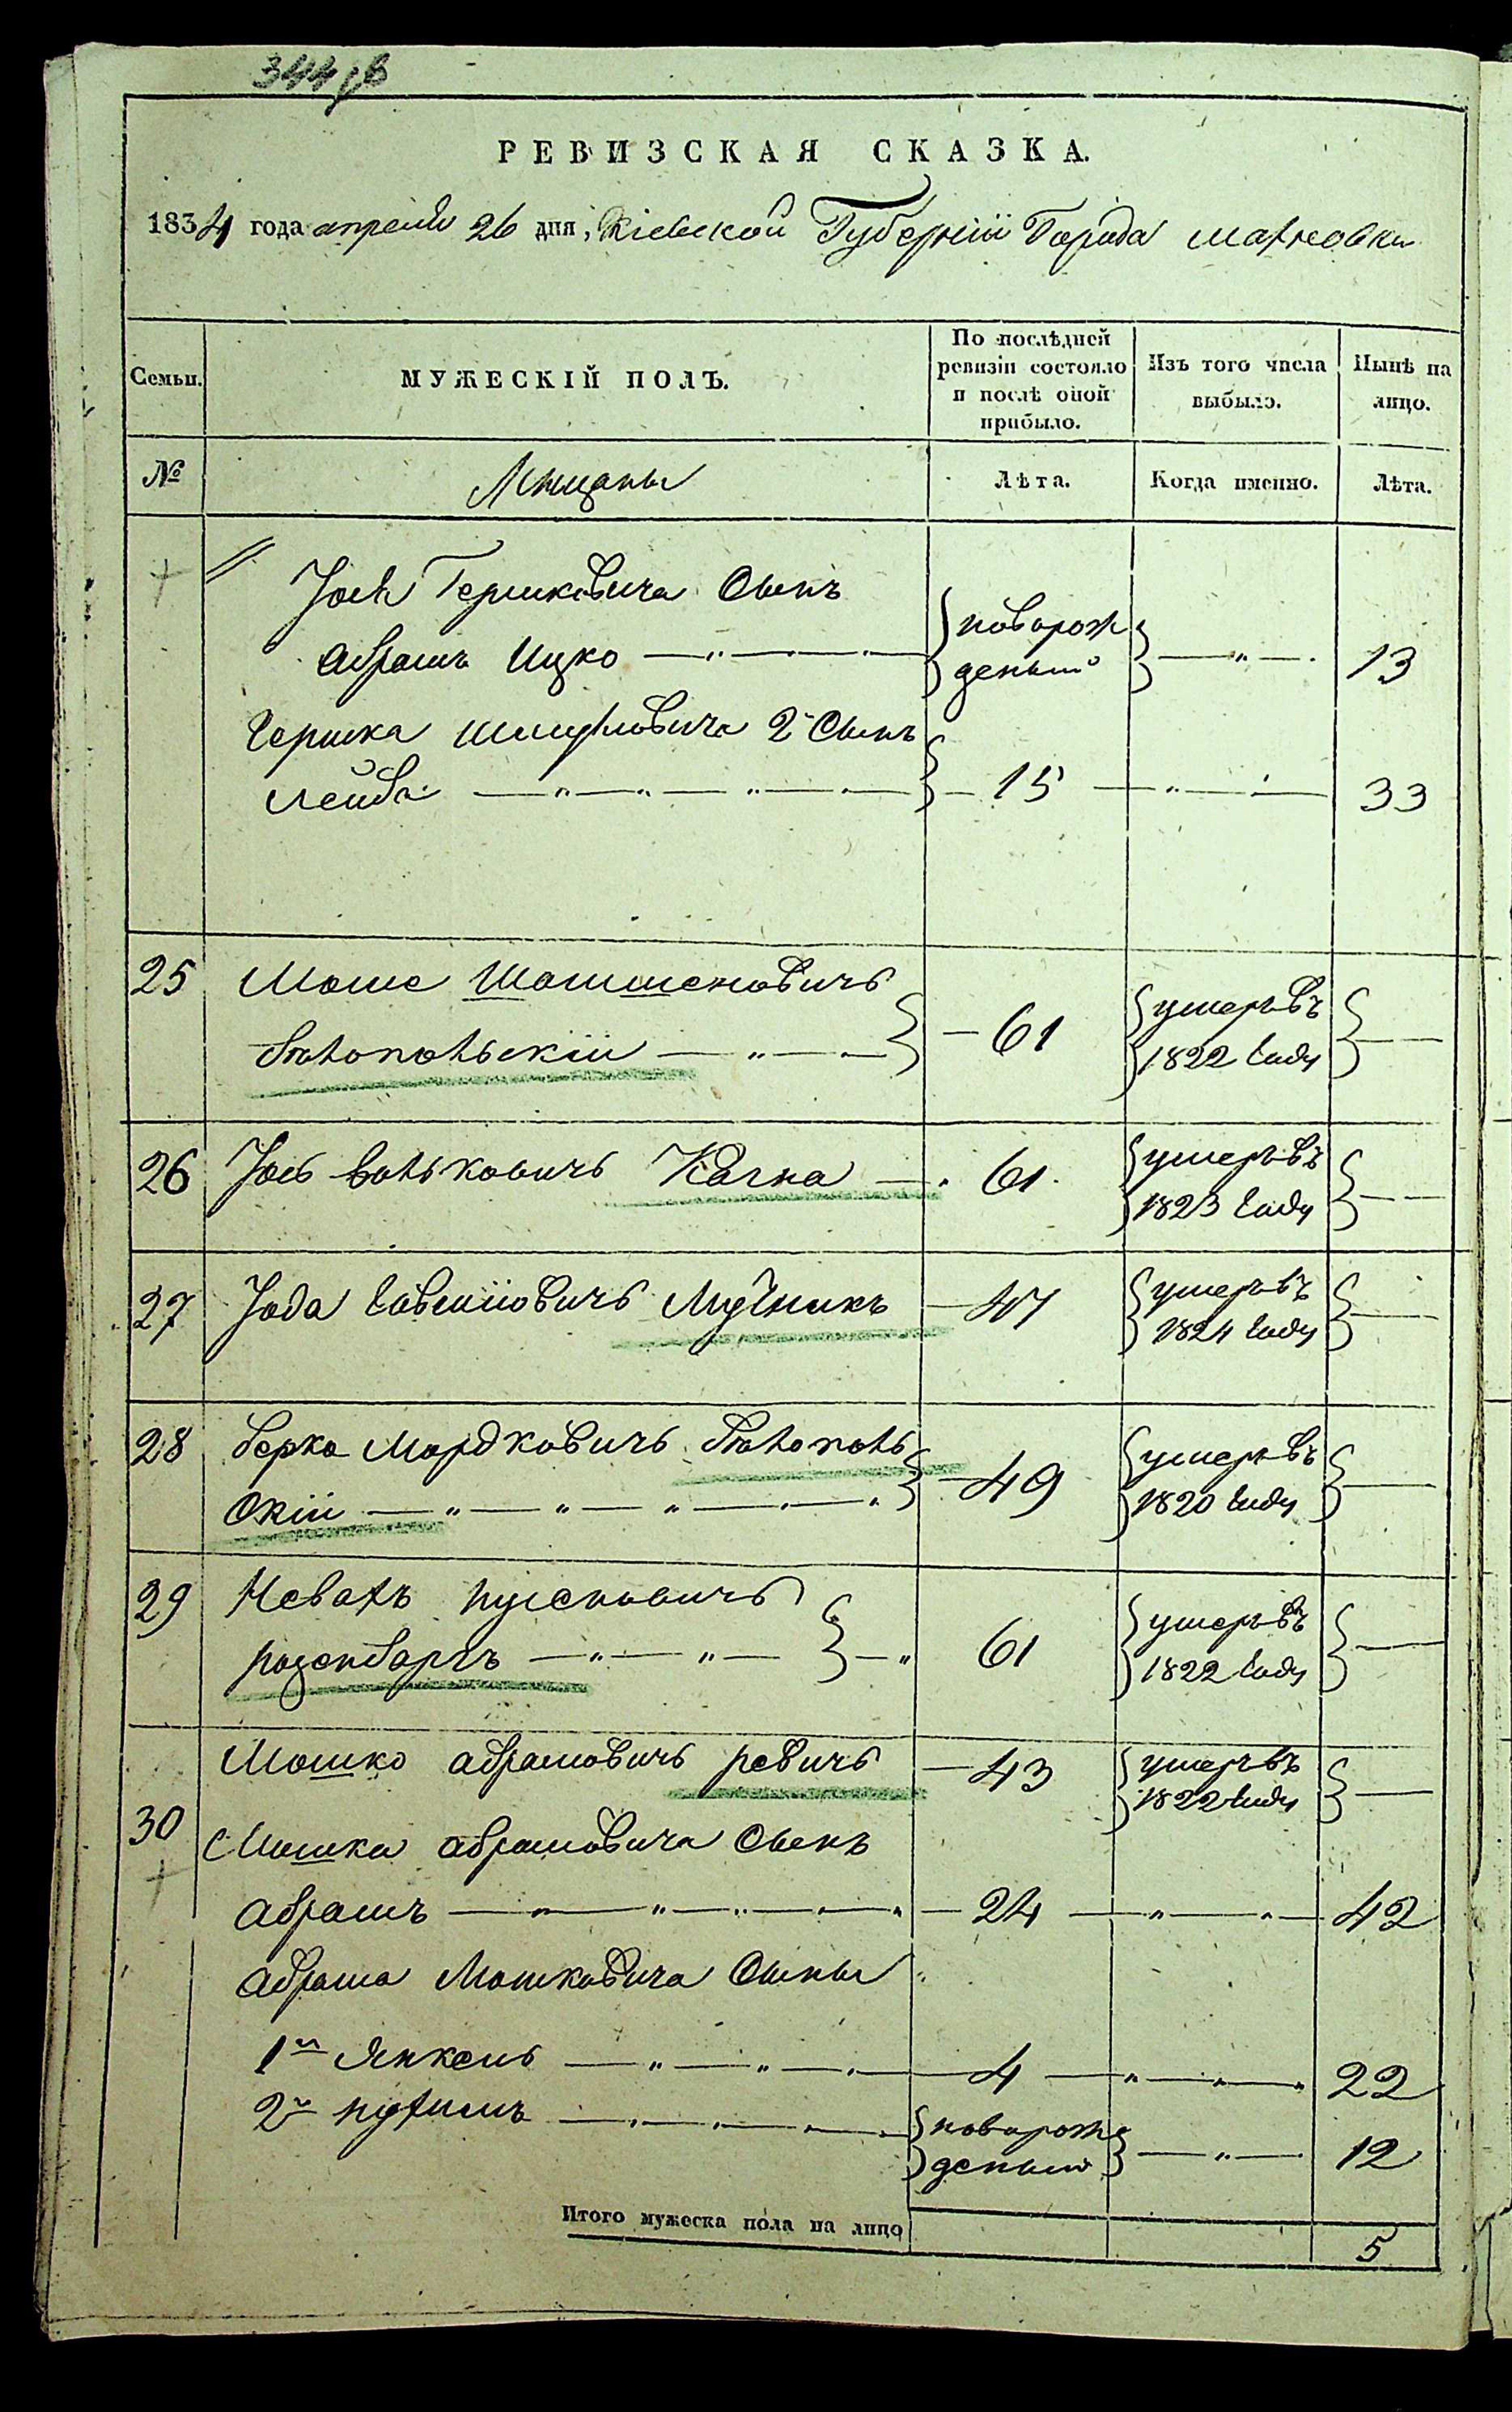 344 об
РЕВИЗСКАЯ СКАЗКА.
1834 года апреля 26 дня, Кіевской Губерніи Города Махновки
Семьи. МУЖЕСКІЙ ПОЛЪ. По послѣдней ревизіи состояло и послѣ оной прибыло. Изъ того числа выбыло. Нынѣ на лицо.
№ Мещаны Лѣта. Когда именно. Лѣта.
Іося Гершковича Сынъ
Абрамъ Ицко новорож деный 13
Гершка Шмулевича 2й Сынъ
Лейба 15 33
25 Моше
Бялопольскій 61 умеръ въ 1822 году
26 Іось Волькович Качка 61 умеръ въ 1823 году
27 Іода Мучникъ 47 умеръ въ 1824 году
28 Берко Мордкович Бялополь
скій 49 умеръ въ 1820 году
29
розенбаргъ 61 умеръ въ 1822 году
30 Мошко абрамович ревич 43 умеръ въ 1822 году
Мошка абрамовича Сынъ
абрамъ 24 42
абрама Мошковича Сыны
1й Янкель 4 22
2й нухимъ новорож деный 12
Итого мужеска пола на лицо 5